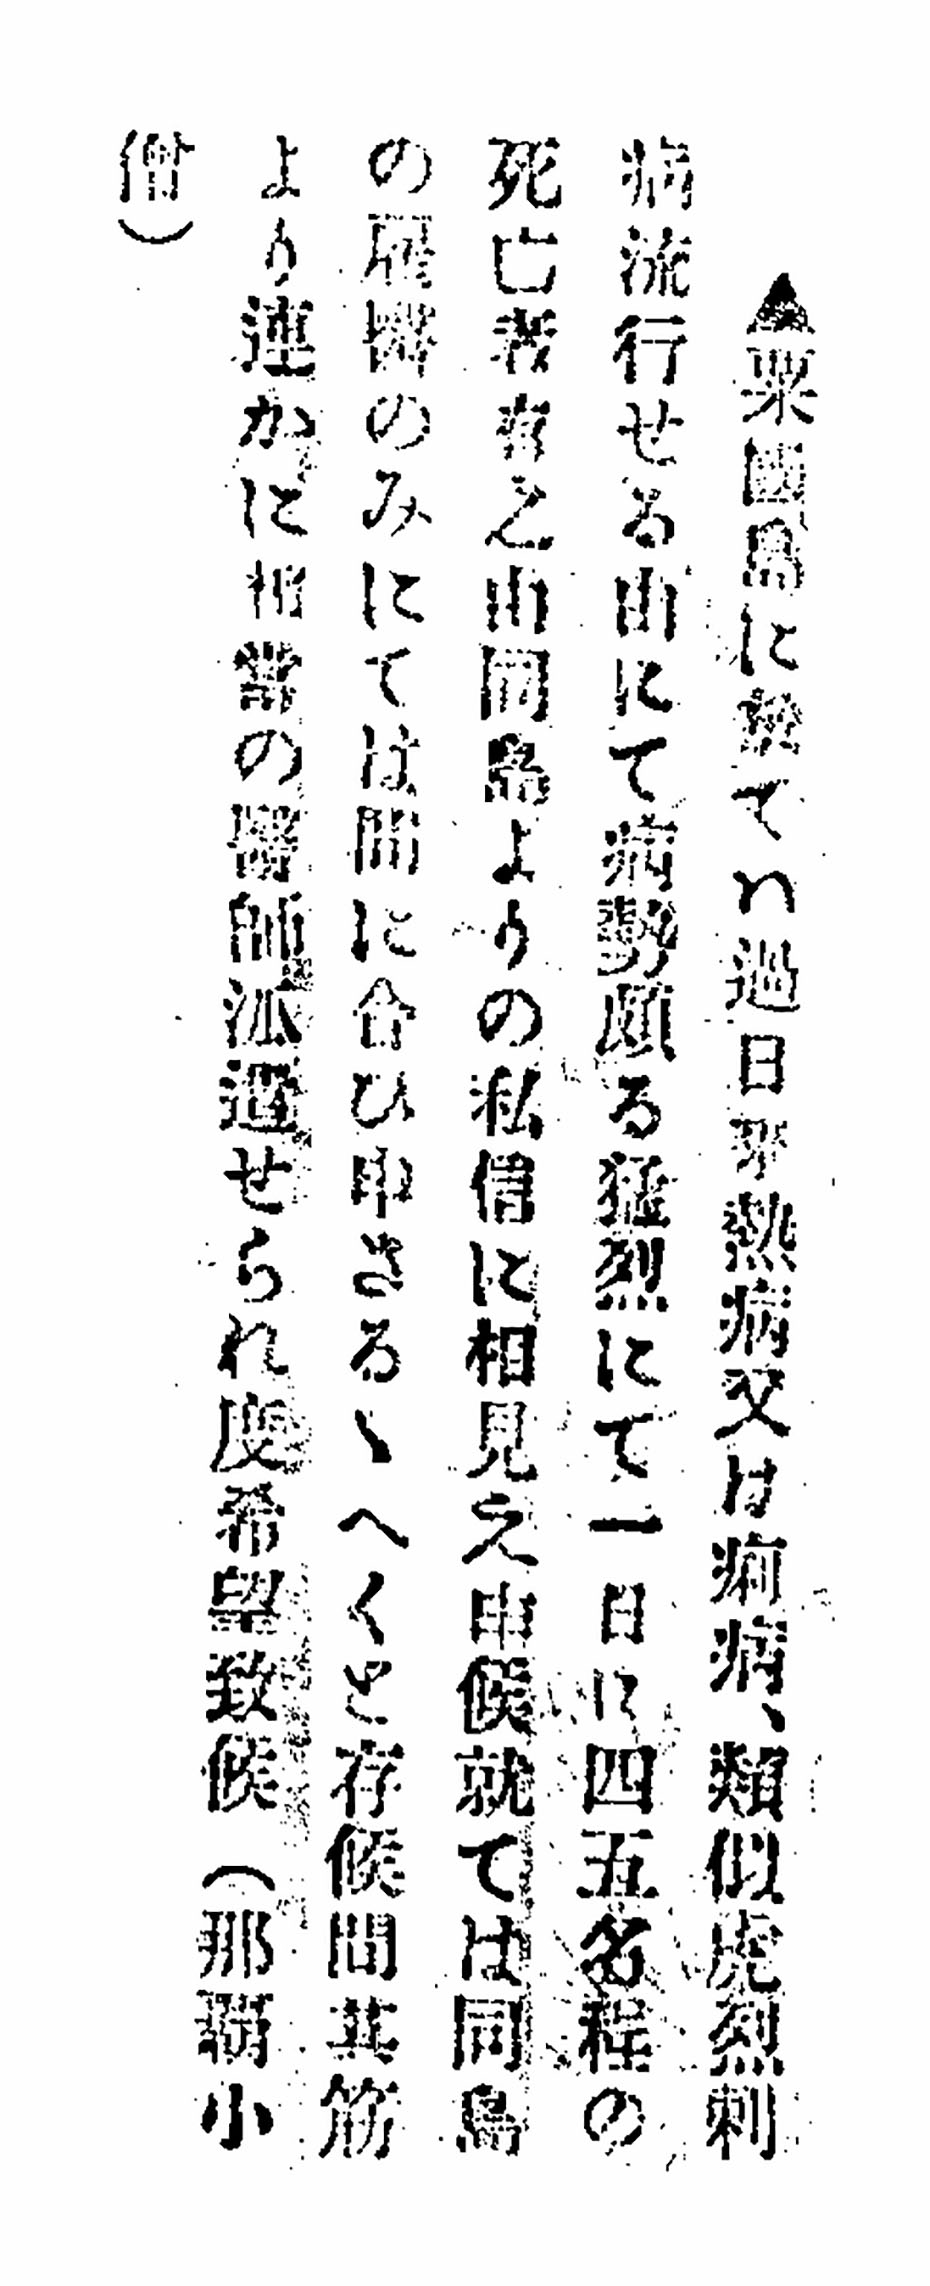 ▲粟國島に於てハ過日來熱病又は痢病、類似虎烈剌
病流行せる由にて病勢頗る猛烈にて一日に四五名程の
死亡者有之由同島よりの私信に相見え申候就ては同島
の雇醫のみにては間に合ひ申さるゝへくと存候間其筋
より速かに相當の醫師派遣せられ度希望致候（那覇小
僧）